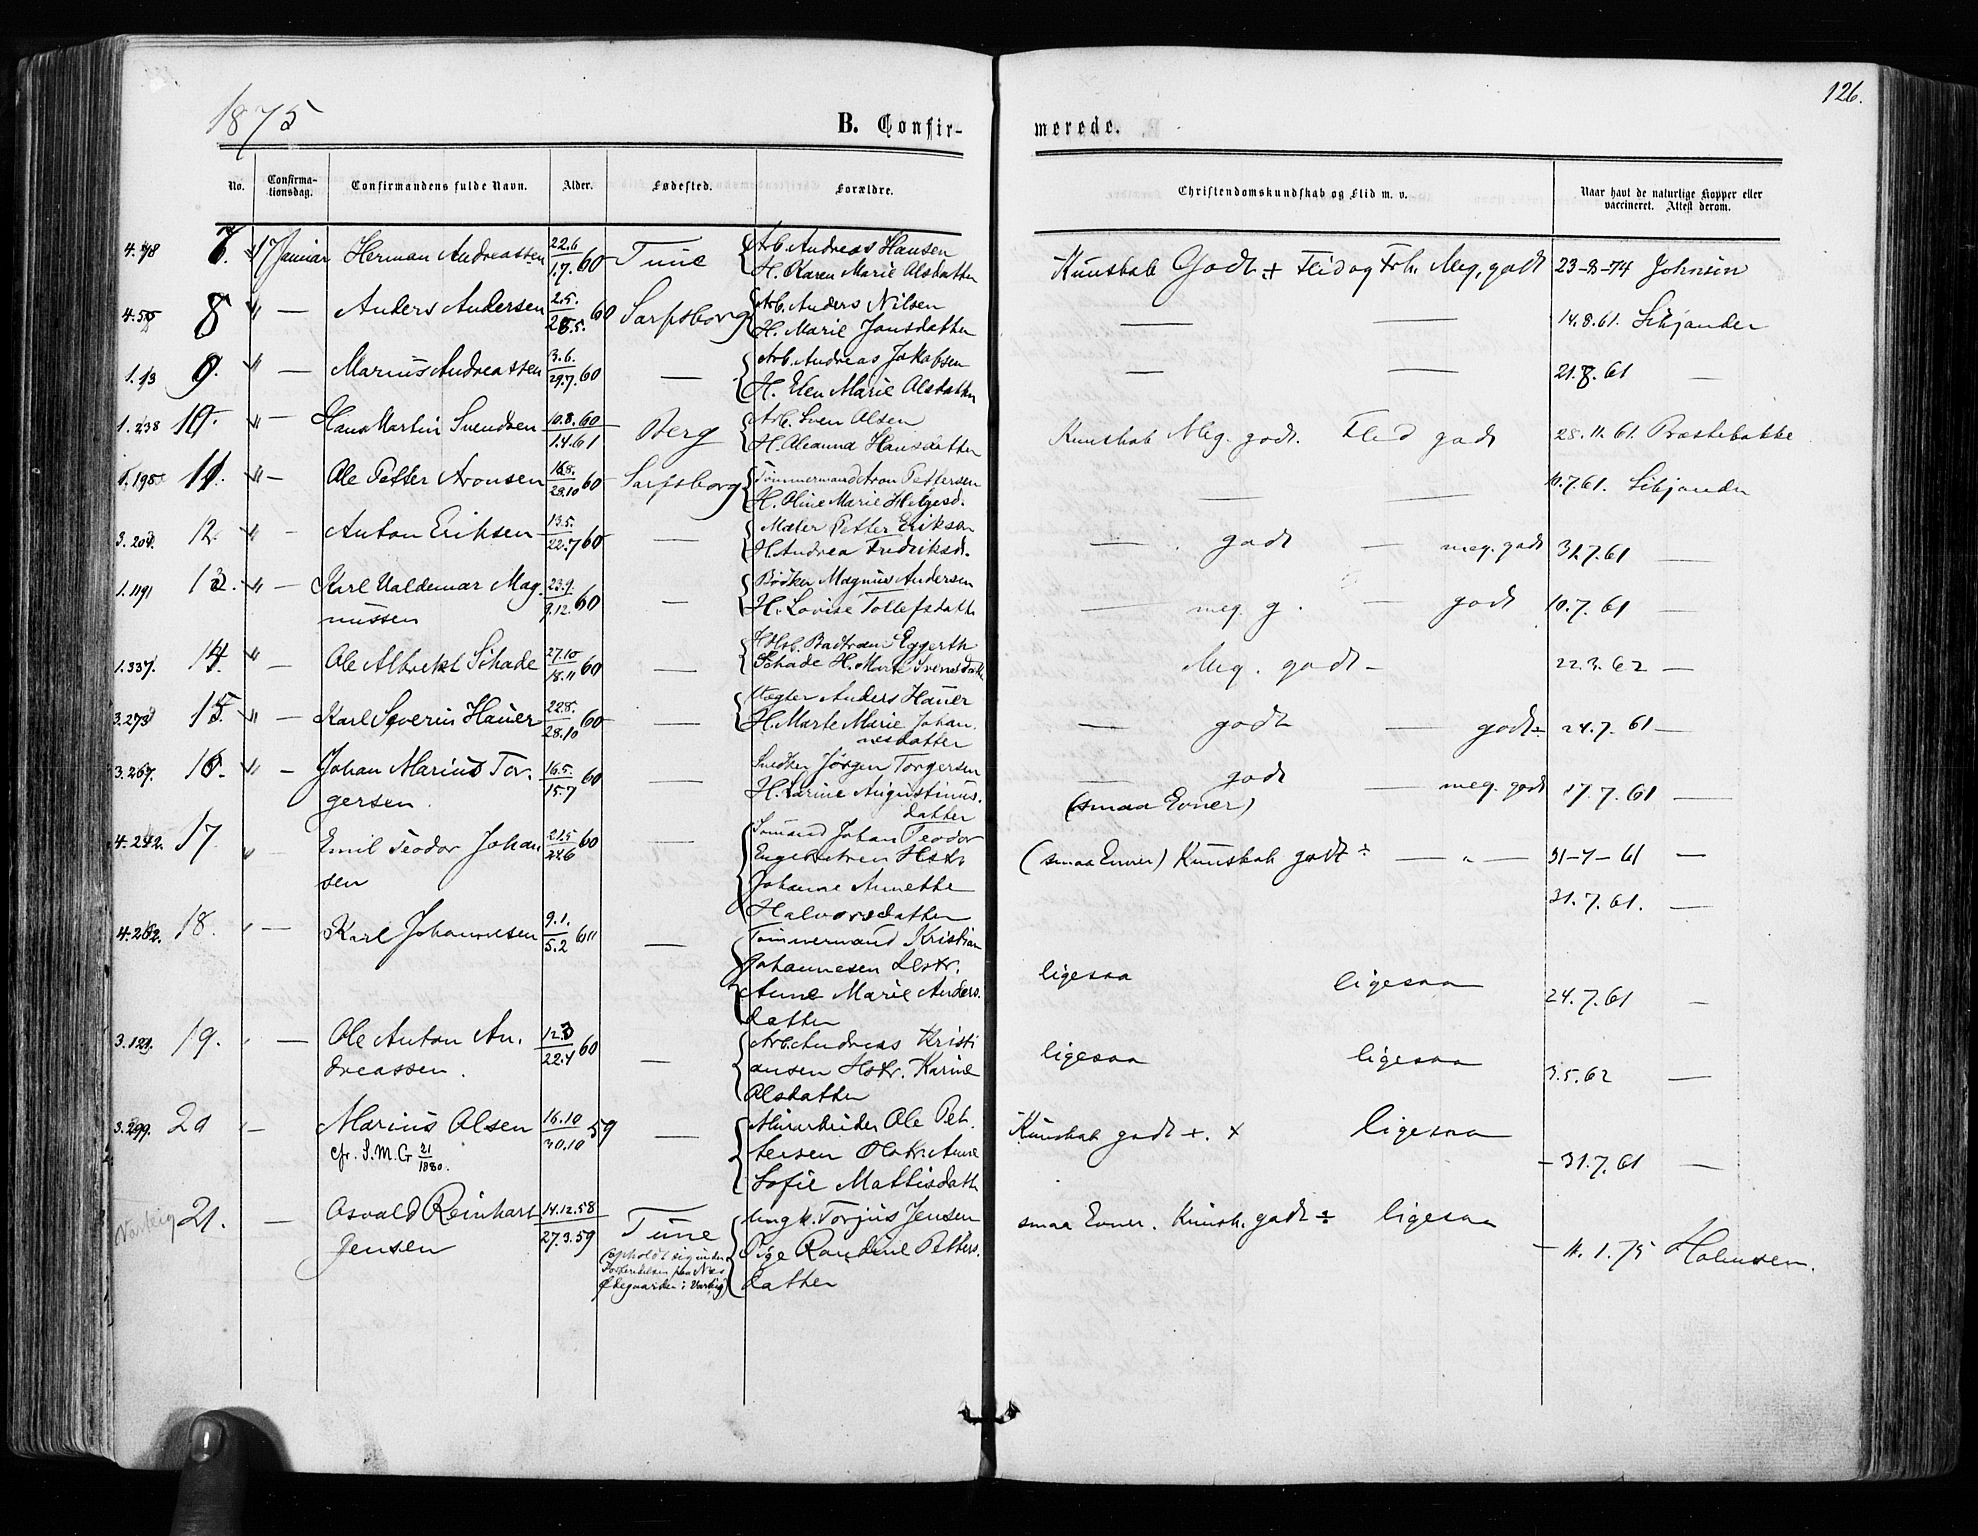 1875
B. Confir-
merede.
126.
No.
Confirma-
tionsdag.
Confirmandens fulde Navn.
Alder.
Fødested.
Forældre.
Christendomskundskab og Flid m. v.
Naar havt de naturlige Kopper eller
vaccineret. Attest derom.
4.78 7. 17 Januar Herman Andreassen 22.6 / 1.7. 60 Tune Arb. Andreas Hansen
H. Karen Marie Olsdatter
Kunskab Godt + Flid og Frh. Meg. godt 23-8-74 Johnsen
8 " — Anders Andersen 2.5. / 28.5. 60 Sarpsborg Arb. Anders Nilsen
H. Marie Jansdatter
— — 14.8.61.
1.13 9. " — Marius Andreassen 3.6. / 29.7. 60 — Arb. Andreas Jakobsen
H. Elen Marie Olsdatter
— — 21.8.61 —
1.238 10. " — Hans Martin Svendsen 10.8.60 / 1.4.61 Berg Arb. Sven Olsen
H. Oleanna Hansdatter
Kunskab Meg. godt. Flid godt 28.11.61. Præstebakke
11. " — Ole Petter Aronsen 16.8. / 28.10 60 Sarpsborg Tømmermand Aron Pettersen
H. Oline Marie Helgesd.
— — 10.7.61.
12. " — Anton Eriksen 13.5. / 22.7 60 — Maler Petter Erikson
H. Andrea Fredriksd.
— godt — meg. godt 31.7.61 —
1.191 13. " — Karl Valdemar Mag-
nussen 23.9. / 9.12. 60 — Bødker Magnus Andersen
H. Lovise Tollefsdatt
— meg. g. — godt 10.7.61 —
1.337. 14. " Ole Albrekt Schade 27.10 / 18.11 60 — Eggerth
Schade H. Marte Svensdatt
Meg. godt — 22.3.62 —
3.273 15. " — Karl Severin Hauer 22.8. / 28.10 60 — Vægter Anders Hauer
H. Marte Marie Johan.
nesdatter
— godt — godt ÷ 24.7.61 —
3.267. 16. " — Johan Marius Tor-
gersen. 16.5. / 15.7 60 — Snedker Jörgen Torgersen
H. Karine Augustinus.
datter
— godt — meg. godt 17.7.61 —
(smaa Evner)
4.242. 17. " Emil Teodor Johan
sen 21.5 / 24.6 60 Sømand Johan Teodor
Engebretsen Hstr
Johanne Annette
Halvorsdatter
(smaa Evner) Kunskab godt ÷ — " — 31-7-61 —
31.7.61. —
4.262. 18. " — Karl Johannesen 9.1. / 5.2 60 — Tømmermand Kristian
Johannesen Hstr.
Anne Marie Anders.
datter
ligesaa ligesaa 24.7.61 —
3.121. 19. " — Ole Anton An.
dreassen. 12.3 / 22.4 60 — Arb. Andreas Kristi
ansen Hstr. Karine
Olsdatter
ligesaa ligesaa 3.5.62 —
3.299. 20 — Marius Olsen 16.10 / 30.10 59 — Murarbeider Ole Pet.
cfr. S.M.G 21/1880.
tersen Hstr Anne
Sofie Mattisdatt
Kunskab godt +. x ligesaa — 31.7.61 —
Varteig 21. — Osvald Reinhart
Jensen 14.12.58 / 27.3.59 Tune
(opholdt sig under
Forberedelsen paa Næs
Ødegaarden i Varteig)
Ungk. Torjus Jensen
Pige Randine Petters.
datter
smaa Evner. Kunsk. godt ÷ ligesaa — 11.1.75 Holmsen.